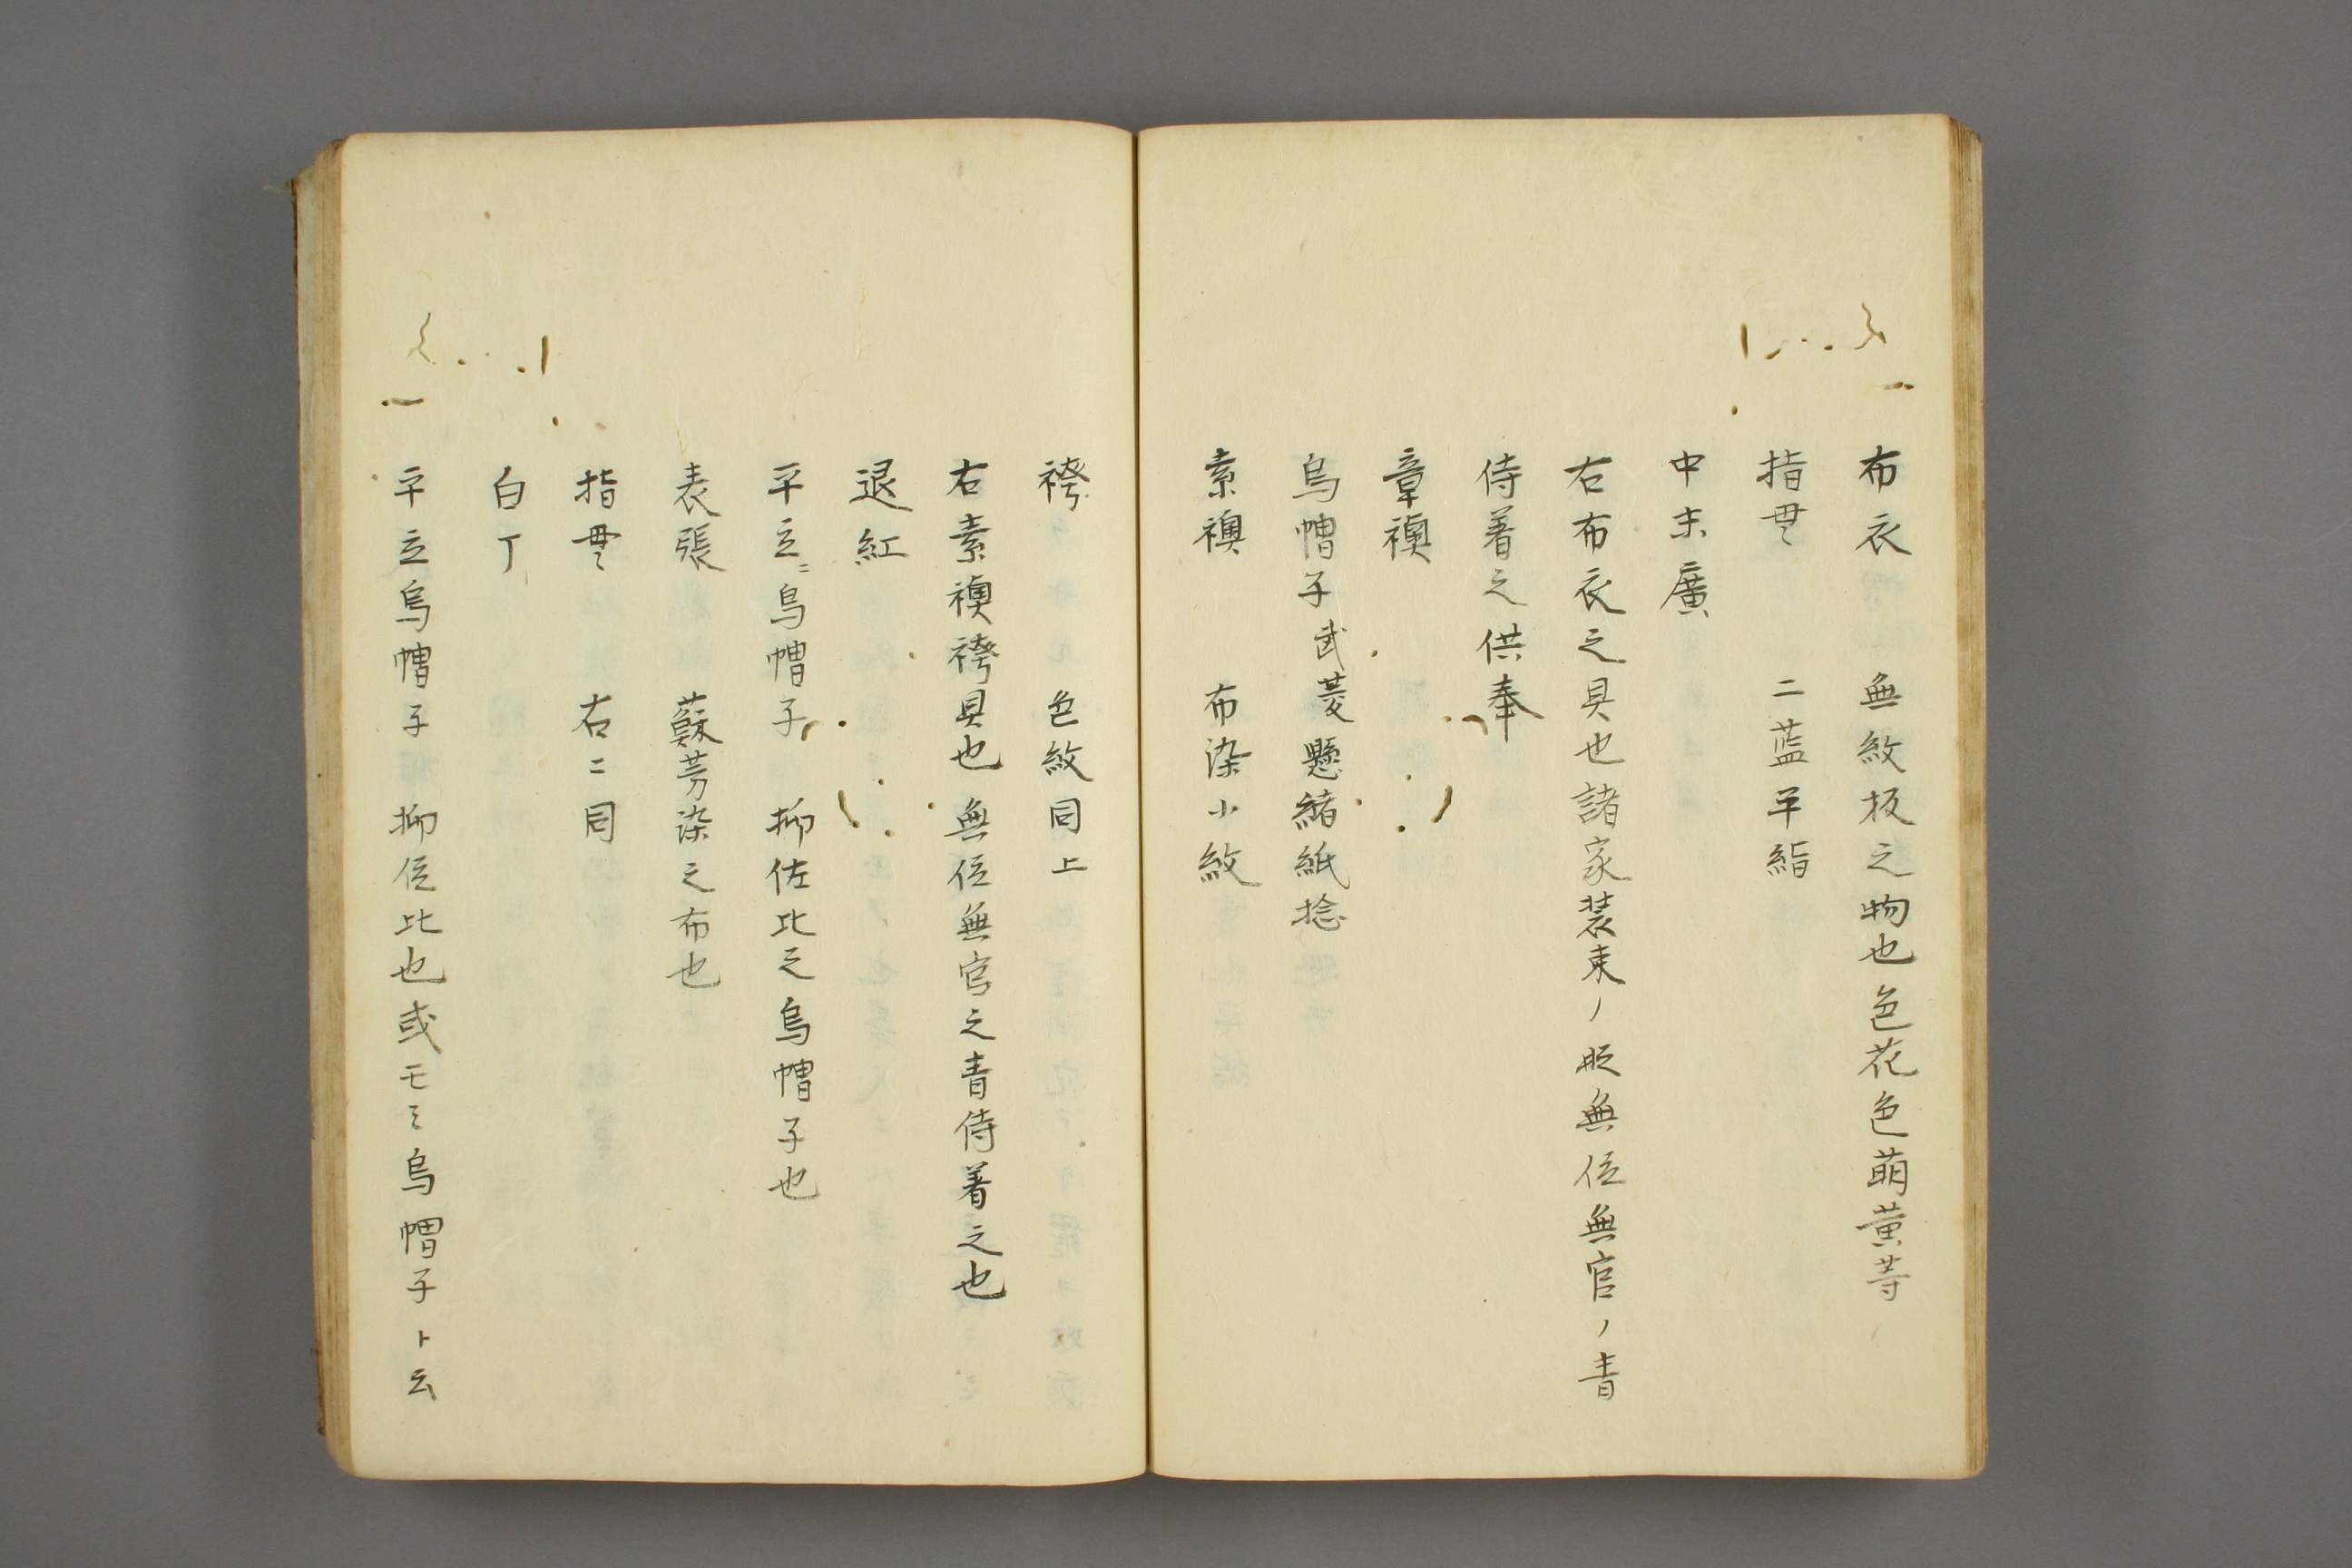 布衣　無紋板之物也色花色萌黄等
指貫　二藍平絹
中末廣
右布衣之具也諸家装束ノ時無位無官ノ青
侍着之供奉
章襖
烏帽子武菱懸緒紙捻
素襖　布染小紋
袴　色紋同上
右素襖袴具也無位無官之青侍着之也
退紅
平立ニ烏帽子　抑佐比之烏帽子也
表張　蘇芳染之布也
指貫　右ニ同
白丁
平立烏帽子　抑位比也或モミ烏帽子ト云